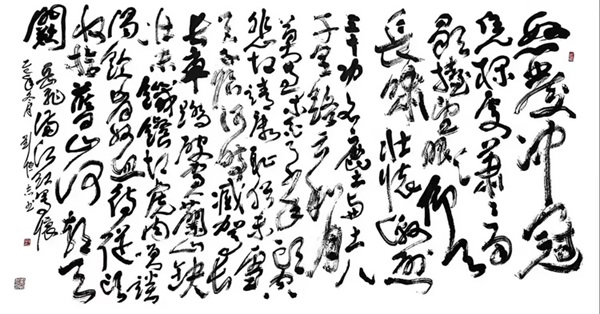 怒髮冲冠
凭栏处潇潇雨
歇抬望眼仰天
長啸壮懷激烈
三十功名尘与土八
千里路云和月
莫等闲白了少年头空
悲切靖康耻犹未雪
臣子恨何時滅驾長
車踏破賀蘭山缺
壮志饑餐胡虏肉笑談
渴飲匈奴血待從头
收拾舊山河朝天
闕
岳飞满江红写懷
年冬月 刘